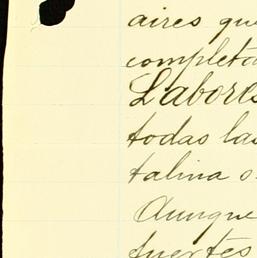 aires que
completa
Labores
todas las
talina o
Aunque
fuertes